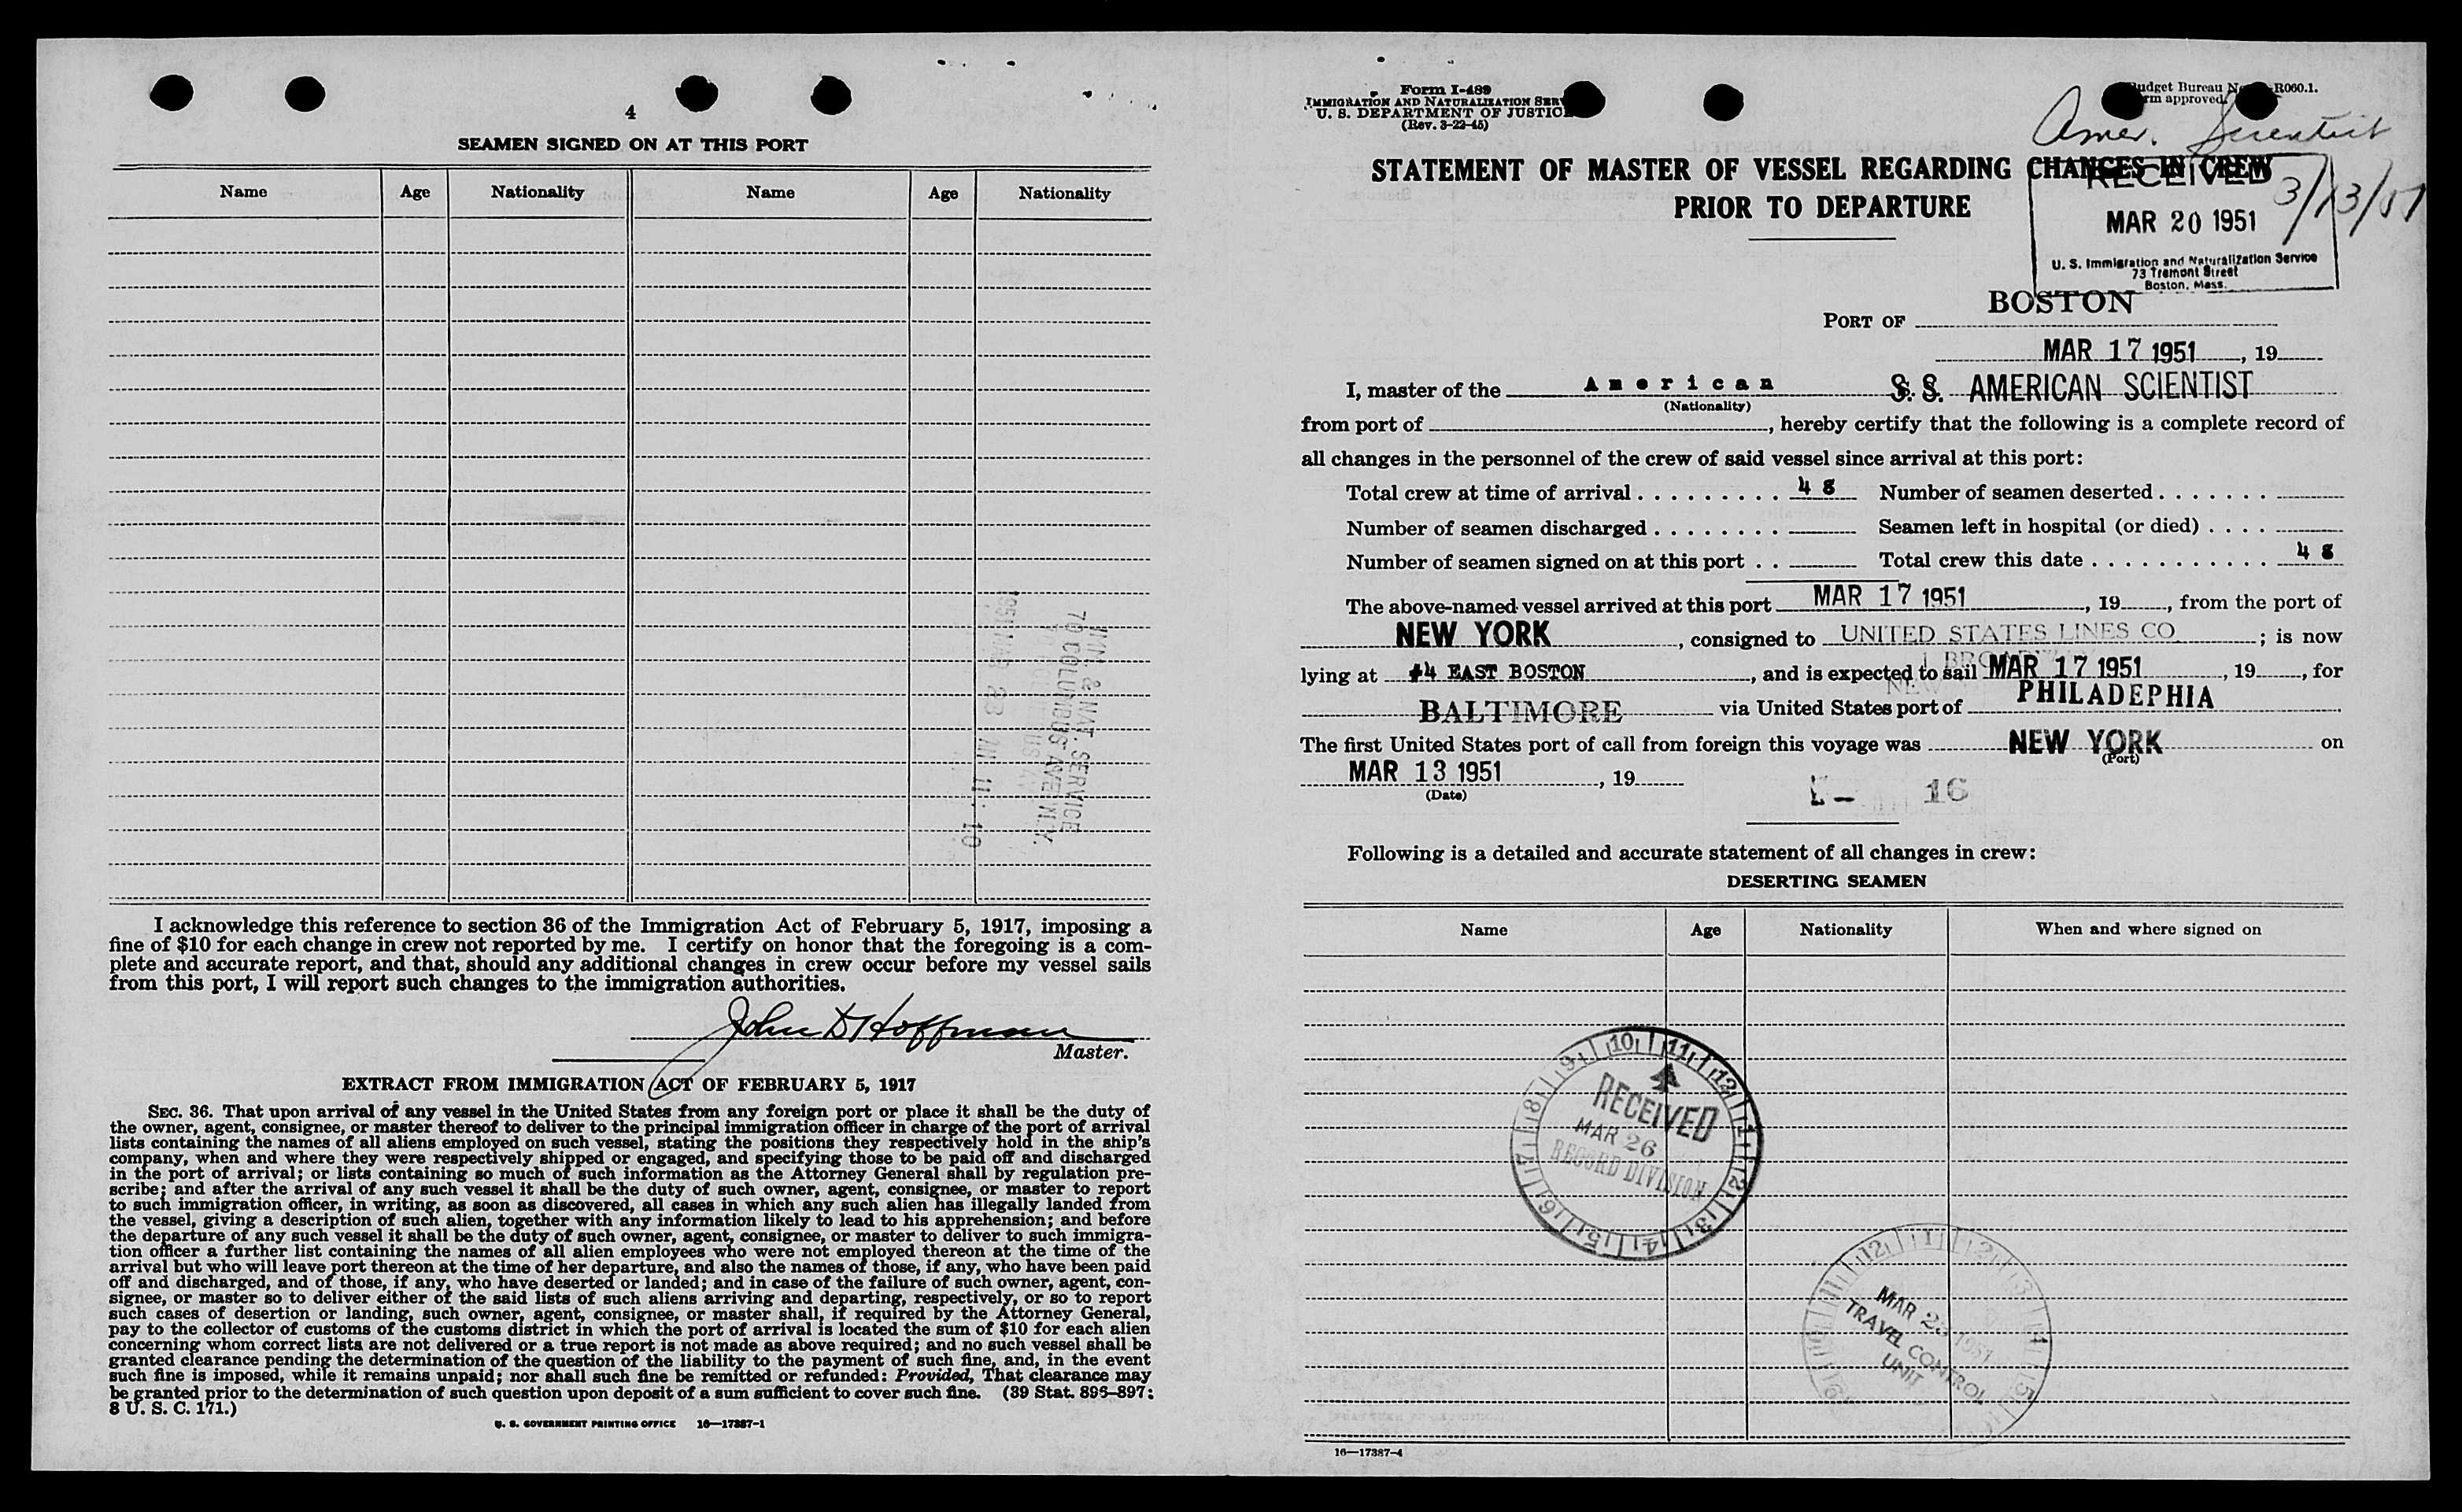 4
SEAMEN SIGNED ON AT THIS PORT
Name Age Nationality Name Age Nationality
1951 MAR 23 11:10
IMM. & NAT. SERVICE
70 COLUMBUS AVE N.Y.
I acknowledge this reference to section 36 of the Immigration Act of February 5, 1917, imposing a
fine of $10 for each change in crew not reported by me. I certify on honor that the foregoing is a com-
plete and accurate report, and that, should any additional changes in crew occur before my vessel sails
from this port, I will report such changes to the immigration authorities.
John D Hoffman
Master.
EXTRACT FROM IMMIGRATION ACT OF FEBRUARY 5, 1917
SEC. 36. That upon arrival of any vessel in the United States from any foreign port or place it shall be the duty of
the owner, agent, consignee, or master thereof to deliver to the principal immigration officer in charge of the port of arrival
lists containing the names of all aliens employed on such vessel, stating the positions they respectively hold in the ship's
company, when and where they were respectively shipped or engaged, and specifying those to be paid off and discharged
in the port of arrival; or lists containing so much of such information as the Attorney General shall by regulation pre-
scribe; and after the arrival of any such vessel it shall be the duty of such owner, agent, consignee, or master to report
to such immigration officer, in writing, as soon as discovered, all cases in which any such alien has illegally landed from
the vessel, giving a description of such alien, together with any information likely to lead to his apprehension; and before
the departure of any such vessel it shall be the duty of such owner, agent, consignee, or master to deliver to such immigra-
tion officer a further list containing the names of all alien employees who were not employed thereon at the time of the
arrival but who will leave port thereon at the time of her departure, and also the names of those, if any, who have been paid
off and discharged, and of those, if any, who have deserted or landed; and in case of the failure of such owner, agent, con-
signee, or master so to deliver either of the said lists of such aliens arriving and departing, respectively, or so to report
such cases of desertion or landing, such owner, agent, consignee, or master shall, if required by the Attorney General,
pay to the collector of customs of the customs district in which the port of arrival is located the sum of $10 for each alien
concerning whom correct lists are not delivered or a true report is not made as above required; and no such vessel shall be
granted clearance pending the determination of the question of the liability to the payment of such fine, and, in the event
such fine is imposed, while it remains unpaid; nor shall such fine be remitted or refunded: Provided, That clearance may
be granted prior to the determination of such question upon deposit of a sum sufficient to cover such fine. (39 Stat. 896-897;
8 U. S. C. 171.)
U. S. GOVERNMENT PRINTING OFFICE 16—17387-1
Form I-489
IMMIGRATION AND NATURALIZATION SERV
U. S. DEPARTMENT OF JUSTICE
(Rev. 3-22-45)
udget Bureau N R060.1.
rm approved.
Amer. Scientist
3/13/51
STATEMENT OF MASTER OF VESSEL REGARDING CHANGES IN CREW
PRIOR TO DEPARTURE
RECEIVED
MAR 20 1951
U. S. Immigration and Naturalization Service
73 Tremont Street
Boston, Mass.
PORT OF BOSTON
MAR 17 1951, 19
I, master of the American S. S. AMERICAN SCIENTIST
(Nationality)
from port of , hereby certify that the following is a complete record of
all changes in the personnel of the crew of said vessel since arrival at this port:
Total crew at time of arrival . . . . . . . . . 48 Number of seamen deserted . . . . . . .
Number of seamen discharged . . . . . . . . Seamen left in hospital (or died) . . . .
Number of seamen signed on at this port . . Total crew this date . . . . . . . . . . . 48
The above-named vessel arrived at this port MAR 17 1951, 19, from the port of
NEW YORK, consigned to UNITED STATES LINES CO; is now
1 BROADWAY
lying at #4 EAST BOSTON, and is expected to sail MAR 17 1951, 19, for
NEW
BALTIMORE via United States port of PHILADEPHIA
The first United States port of call from foreign this voyage was NEW YORK on
(Port)
MAR 13 1951, 19
(Date)
16
Following is a detailed and accurate statement of all changes in crew:
DESERTING SEAMEN
Name Age Nationality When and where signed on
RECEIVED
MAR 26
RECORD DIVISION
MAR 23 1951
TRAVEL CONTROL
UNIT
16—17387-4